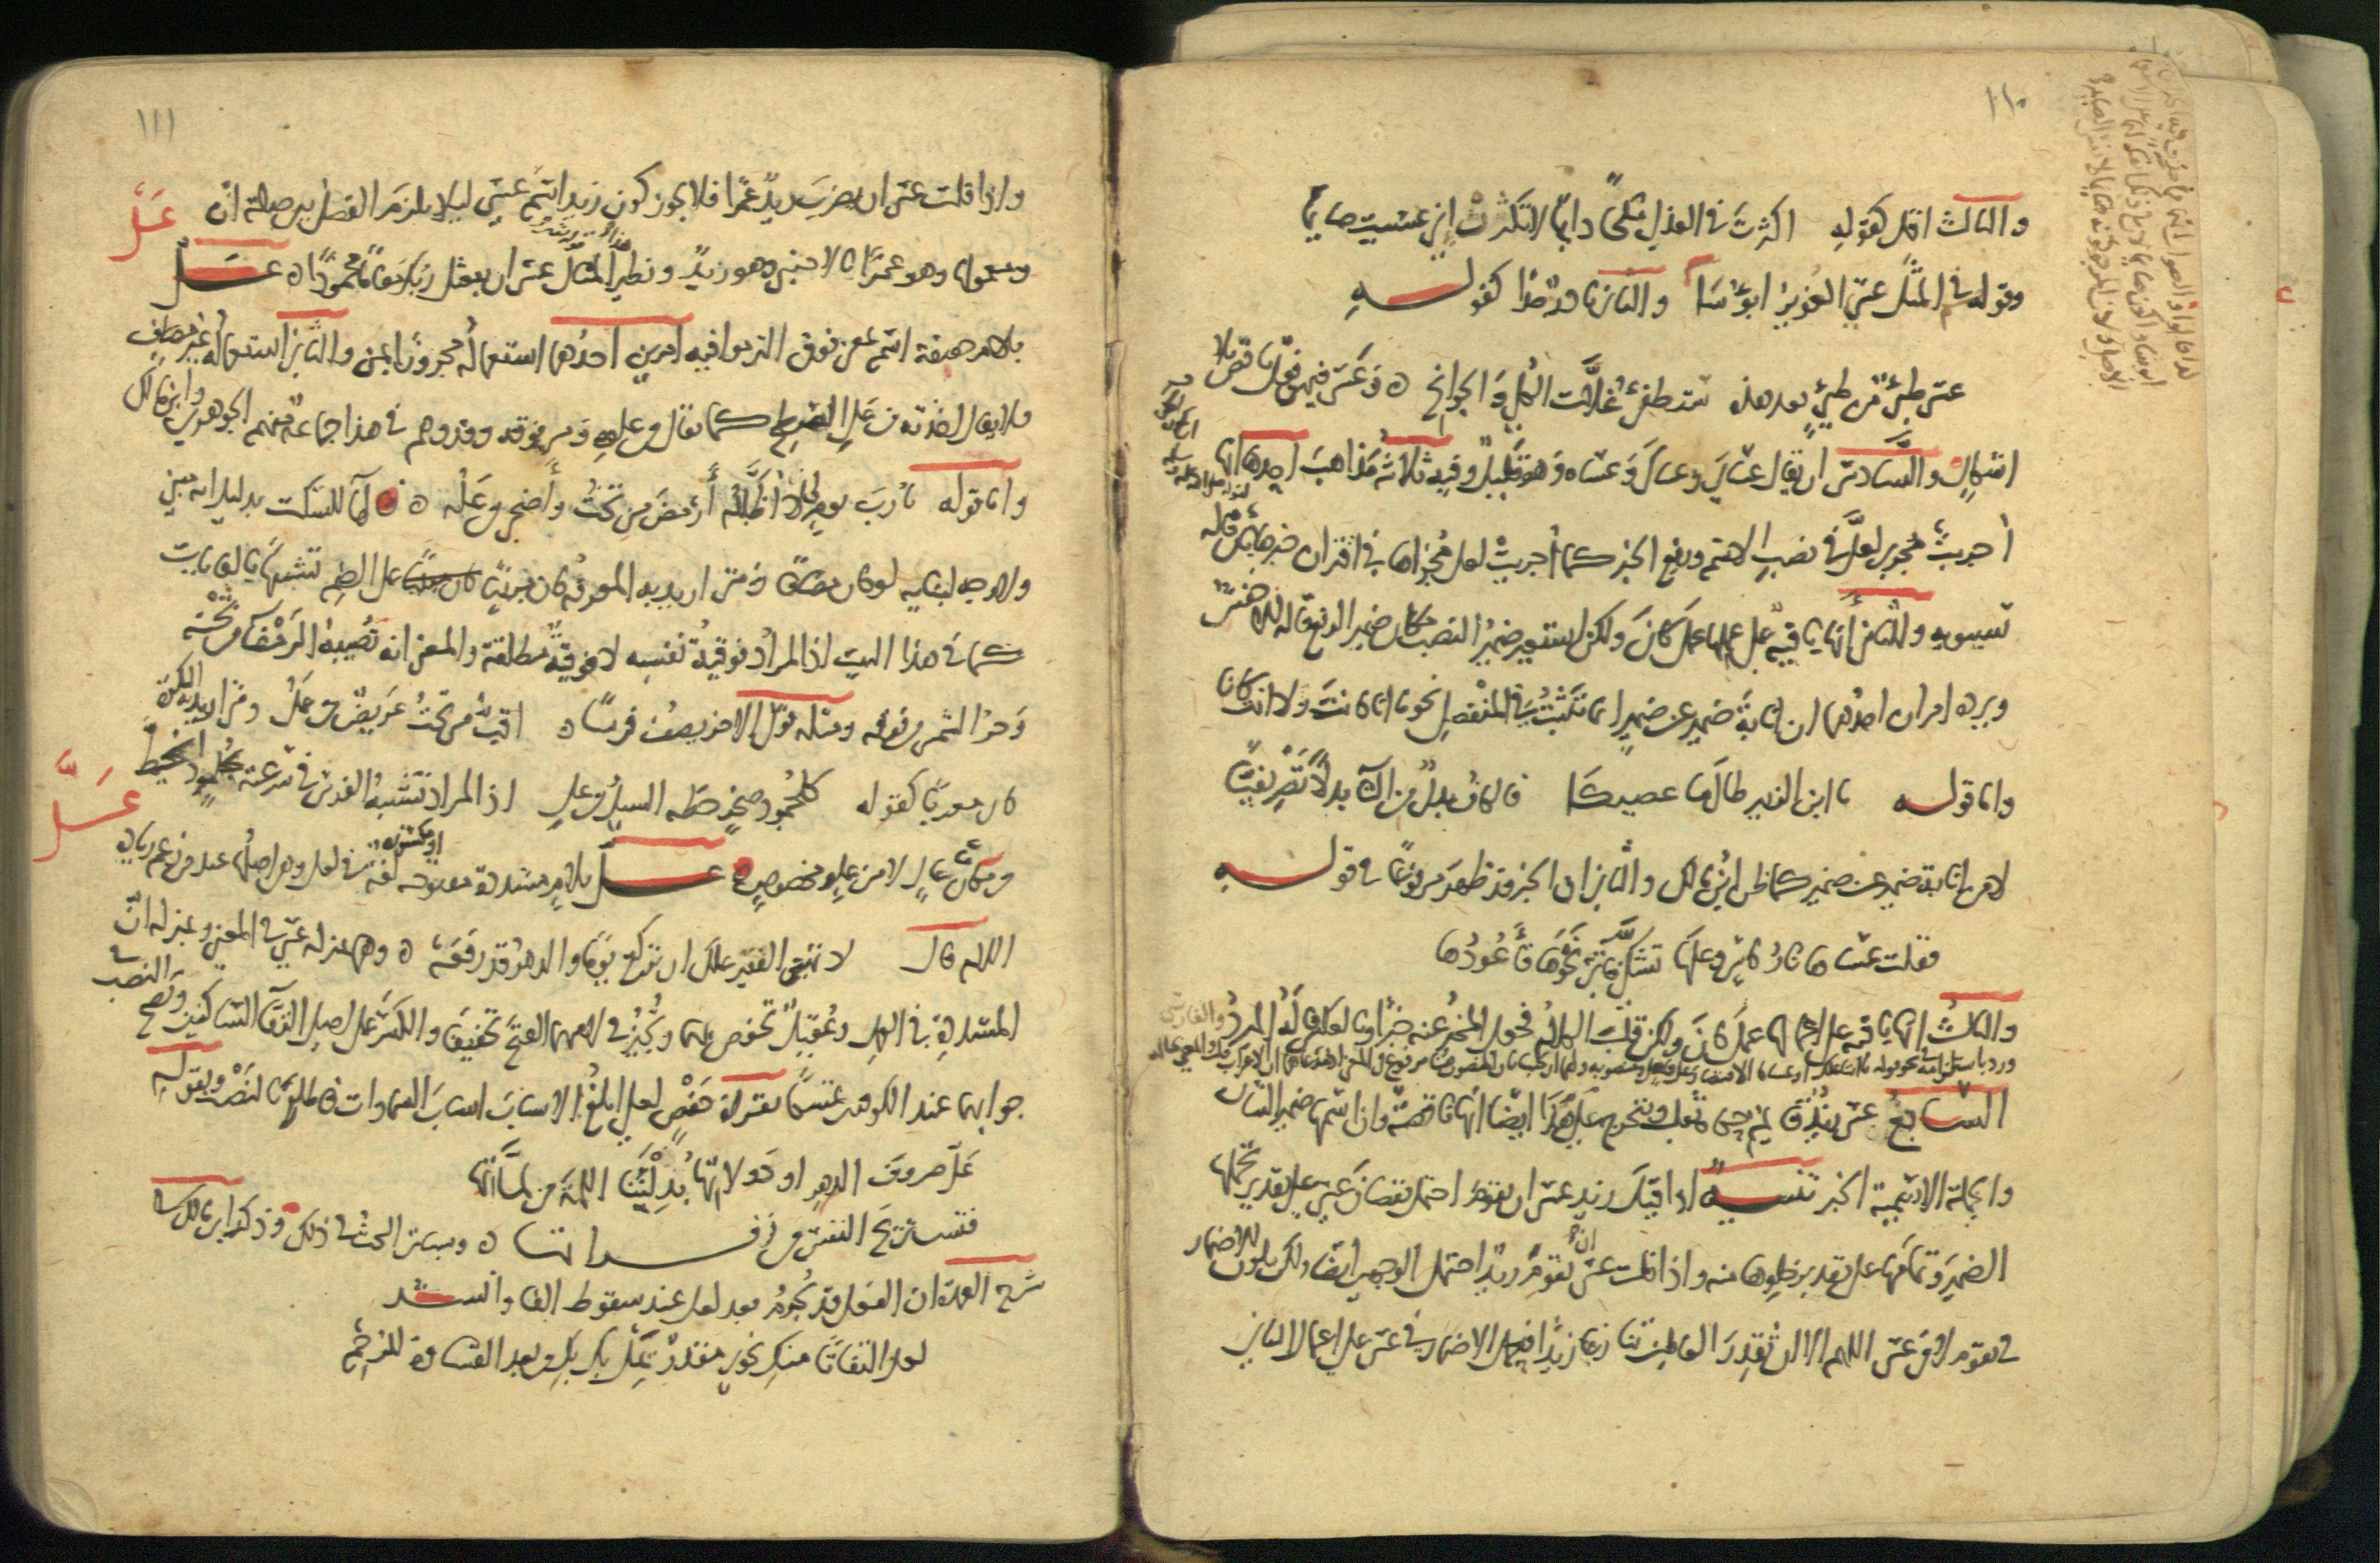 ١١٠
والثالث اقل كقوله اكثرت في العذل ملحا دايما لا تكثرن اني عسيت صايما
وقولهم في المثل عسى الغوير ابؤسا والثاني نادر جدا كقوله
عسى طيئ من طيئ بعد هذه ستطفئ غلات الكلى والجوانح ه وعسى فيهن فعل ناقص بلا
اشكال والسادس ان يقال عساي وعساك وعساه وهو قليل وفيه ثلاثة مذاهب احدها انها
اجريت مجرى لعل في نصب الاسم ورفع الخبر كما اجريت لعل مجراها في اقتران خبرها بان قاله
سيبويه والثاني انها باقية على عملها عمل كان ولكن استعير ضمير النصب مكان ضمير الرفع قاله الاخفش
ويرده امران احدهما ان انابة ضمير عن ضمير انما تثبت في المنفصل نحو ما انا كانت ولا انت كانا
واما قوله يا ابن الزبير طالما عصيكا فالكاف بدل من التا بدلا تصريفيا
لا من انابة ضمير عن ضمير كما ظن ابن مالك والثاني ان الخبر قد ظهر مرفوعا في قوله
فقلت عساها نار كاس وعلها تشكى فآتي نحوها فأعودها
والثالث انها باقية على اعمالها عمل كان ولكن قلب الكلام فجعل المخبر عنه خبرا وبالعكس قاله المبرد والفارسي
السابع عسى زيد قايم حكاه ثعلب ويتخرج على هذا ايضا انها ناقصة وان اسمها ضمير الشان
والجملة الاسمية الخبر تنبيه اذا قيل زيد عسى ان يقوم احتمل نقصان عسى على تقدير تحملها
الضمير وتمامها على تقدير خلوها منه واذا قلت عسى ان يقوم زيد احتمل الوجهين ايضا ولكن يكون الاضمار
في يقوم لا في عسى اللهم الا ان تقدر العاملين تنازعا زيدا فيحتمل الاضمار في عسى على اعمال الثاني
١١١
واذا قلت عسى ان يضرب زيد عمرا فلا يجوز كون زيد اسم عسى ليلا يلزم الفصل بين صلة ان
عل
ومعمولها وهو عمرا بالاجنبي وهو زيد ونظير هذا المثال عسى ان يبعثك ربك مقاما محمودا ه عل
بلام خفيفة اسم بمعنى فوق التزموا فيه امرين احدهما استعماله مجرورا بمن والثاني استعماله غير مضاف
فلا يقال اخذته من عل السطح كما يقال من علوه ومن فوقه وقد وهم في هذا جماعة منهم الجوهري وابن مالك
واما قوله يا رب يوم لي لا اظلله أرمض من تحت وأضحى من عله ه فالها للسكت بدليل انه مبني
ولا وجه لبنايه لو كان مضافا ومتى اريد به المعرفة كان مبنيا على الضم تشبيها بالغايات
كما في هذا البيت اذ المراد فوقية نفسه لا فوقية مطلقة والمعنى انه تصيبه الرمضا من تحته
وحر الشمس من فوقه ومثله قول الاخر يصف فرسا ه اقب من تحت عريض من عل ومتى اريد به النكرة
كان معربا كقوله كجلمود صخر حطه السيل من عل اذ المراد تشبيه الفرس في سرعته بجلمود انحط
عل
من مكان عال لا من علو مخصوص ه عل بلام مشددة مفتوحة او مكسورة لغة في لعل وهي اصلها عند من زعم زيادة
اللام قال لا تهين الفقير علك ان تركع يوما والدهر قد رفعه ه وهي بمنزلة عسى في المعنى وبمنزلة ان
المشددة في العمل وعقيل تخفض بهما وتجيز في لامهما الفتح تخفيفا والكسر على اصل التقا الساكنين ويصح النصب في
جوابهما عند الكوفيين تمسكا بقراءة حفص لعلي ابلغ الاسباب اسباب السماوات فاطلع بالنصب وبقوله
عل صروف الدهر او دولاتها يدلننا اللمة من لماتها
فتستريح النفس من زفراتها ه وسياتي البحث في ذلك وذكر ابن مالك في
شرح العمدة ان الفعل قد يجزم بعد لعل عند سقوط الفا وانشد
لعل التفاتا منك نحوي مقدر يمل بك من بعد القساوة للرحم